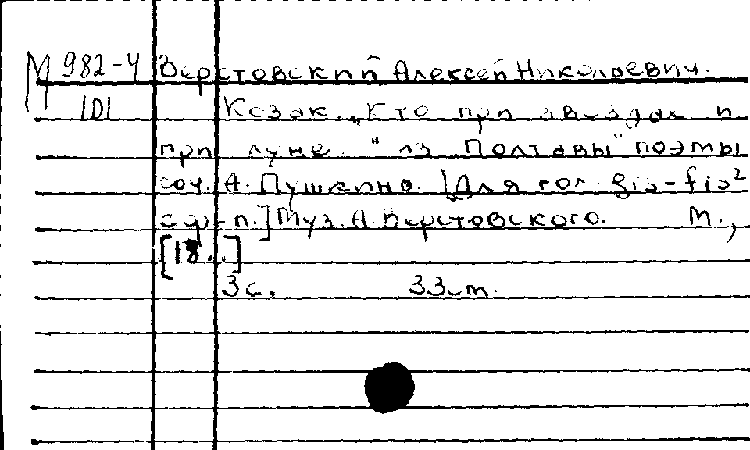 М 982-4 Верстовский Алексей Николаевич.
101 Козак. „Кто при звездах и
при луне..." из „Полтавы" поэмы
соч. А. Пушкина. [Для гол. gis-fis²
с ф-п.] Муз. А. Верстовского. М.,
[18..]
3 с. 33 cm.